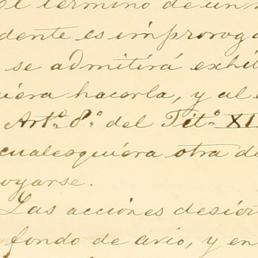 el termino de un
dente es improroga
se admitirá exhi
quiera hacerla, y al e
Artº. 8º. del Titº. XI
cualesquiera otra d
oyarse.
Las acciones desier
fondo de avio, y en